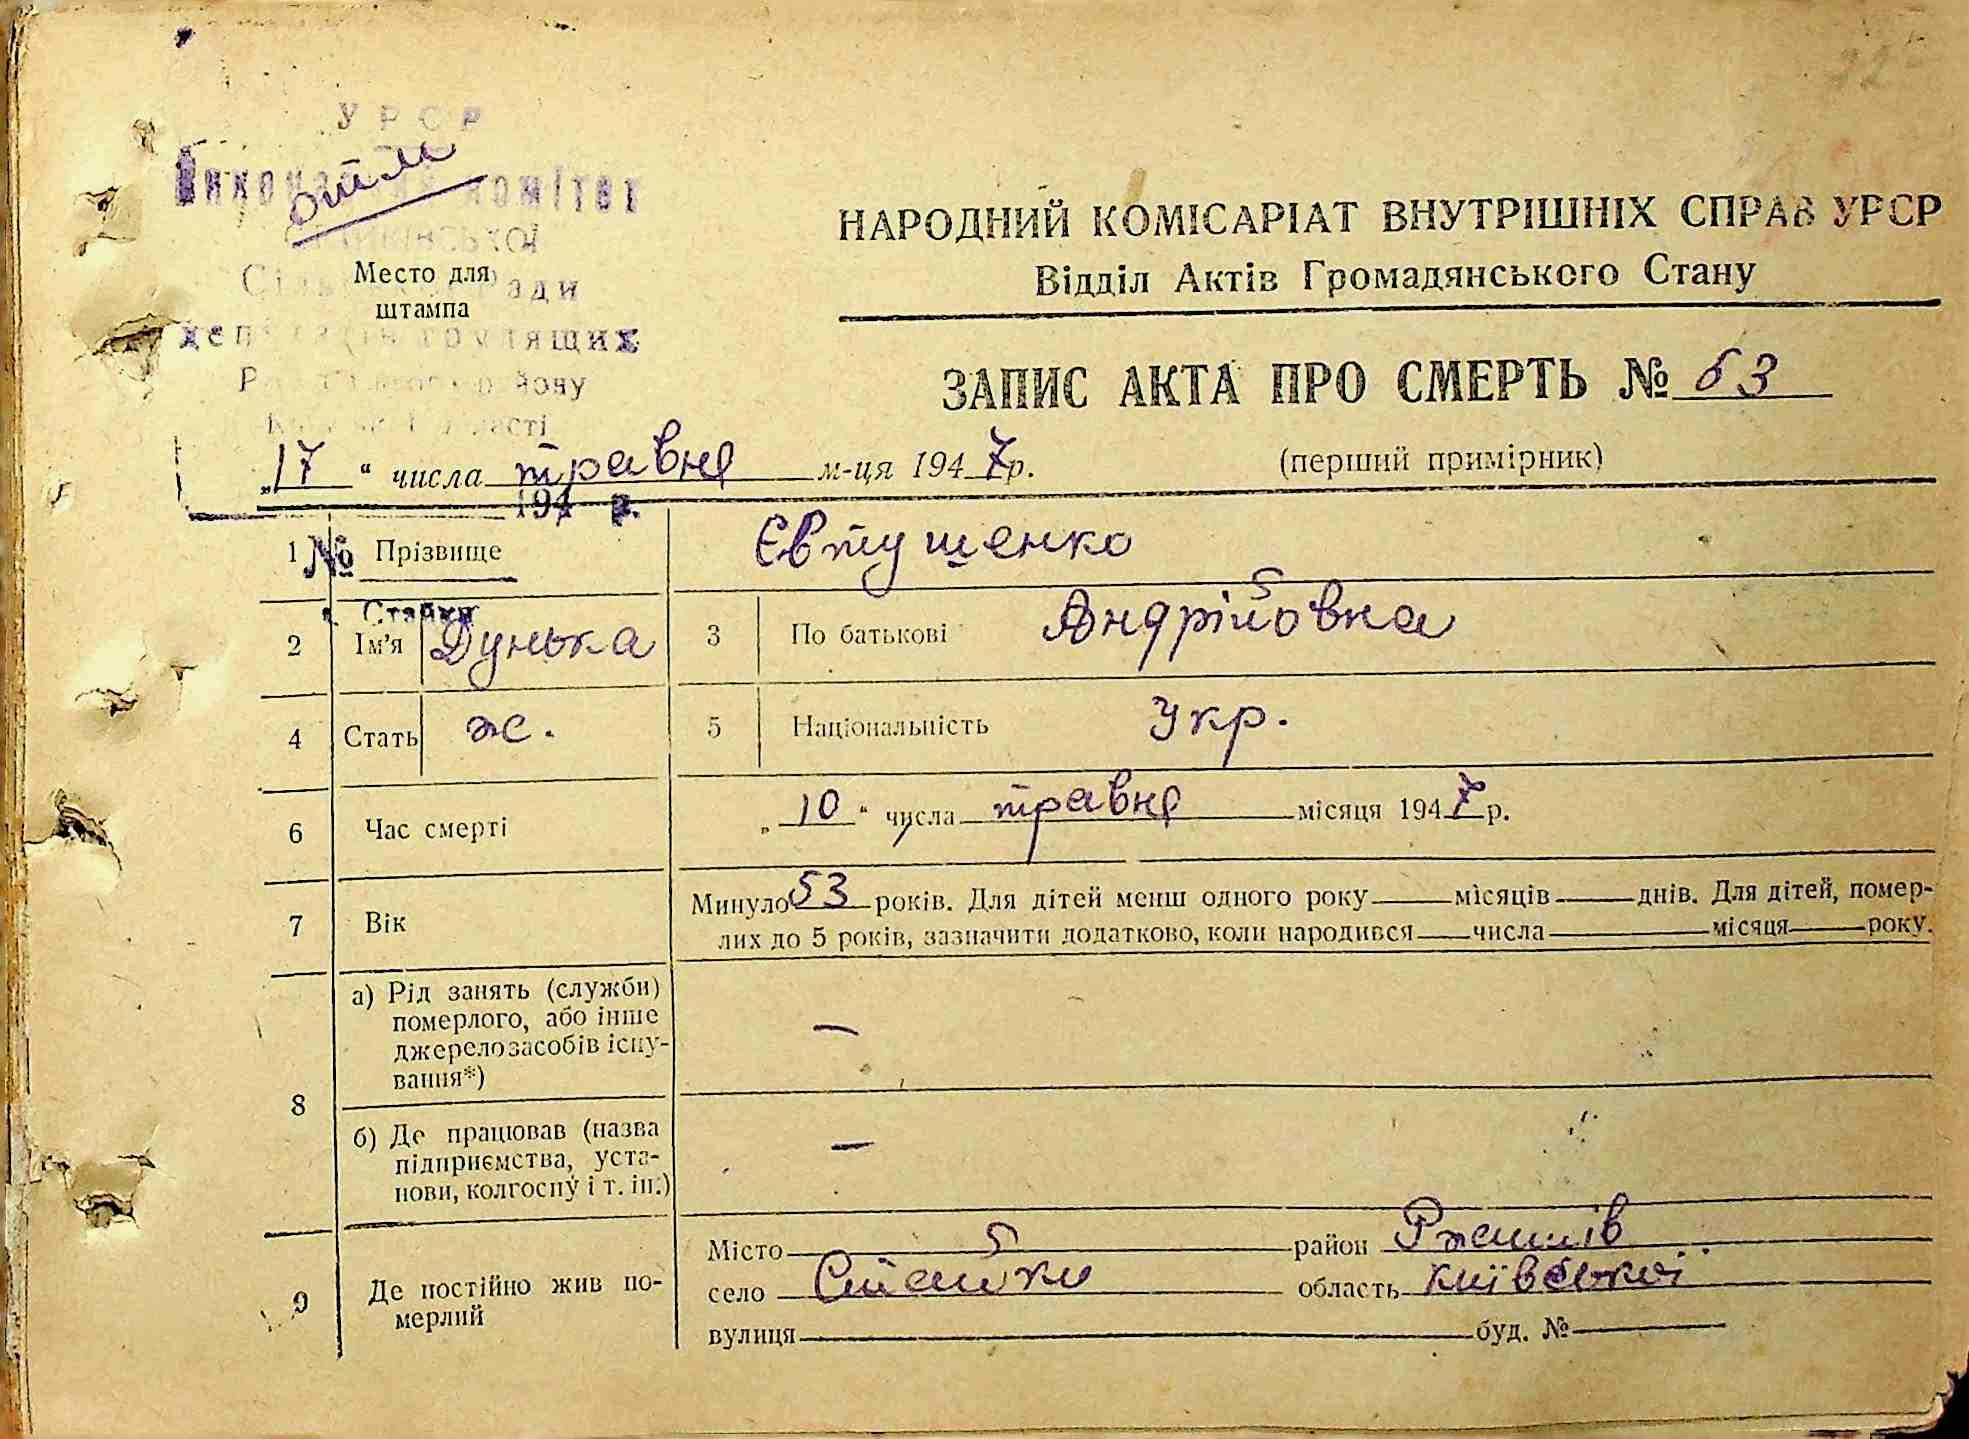 УРСР
Виконавчий комітет
Стайківської
Сільської Ради
депутатів трудящих
Ржищівського району
Київської області
Место для
штампа
НАРОДНИЙ КОМІСАРІАТ ВНУТРІШНІХ СПРАВ УРСР
Відділ Актів Громадянського Стану
ЗАПИС АКТА ПРО СМЕРТЬ № 63
„17“ числа травня м-ця 1947 р.
(перший примірник)
194 р.
№
Стайки
1 Прізвище Євтушенко
2 Ім'я Дунька 3 По батькові Андрійовна
4 Стать ж. 5 Національність Укр.
6 Час смерті „10“ числа травня місяця 1947 р.
7 Вік Минуло 53 років. Для дітей менш одного року місяців днів. Для дітей, помер-
лих до 5 років, зазначити додатково, коли народився числа місяця року.
8 а) Рід занять (служби)
померлого, або інше
джерело засобів існу-
вання*) —
б) Де працював (назва
підприємства, уста-
нови, колгоспу і т. ін.) —
9 Де постійно жив по-
мерлий
Місто район Ржищів
село Стайки область Київської
вулиця буд. №